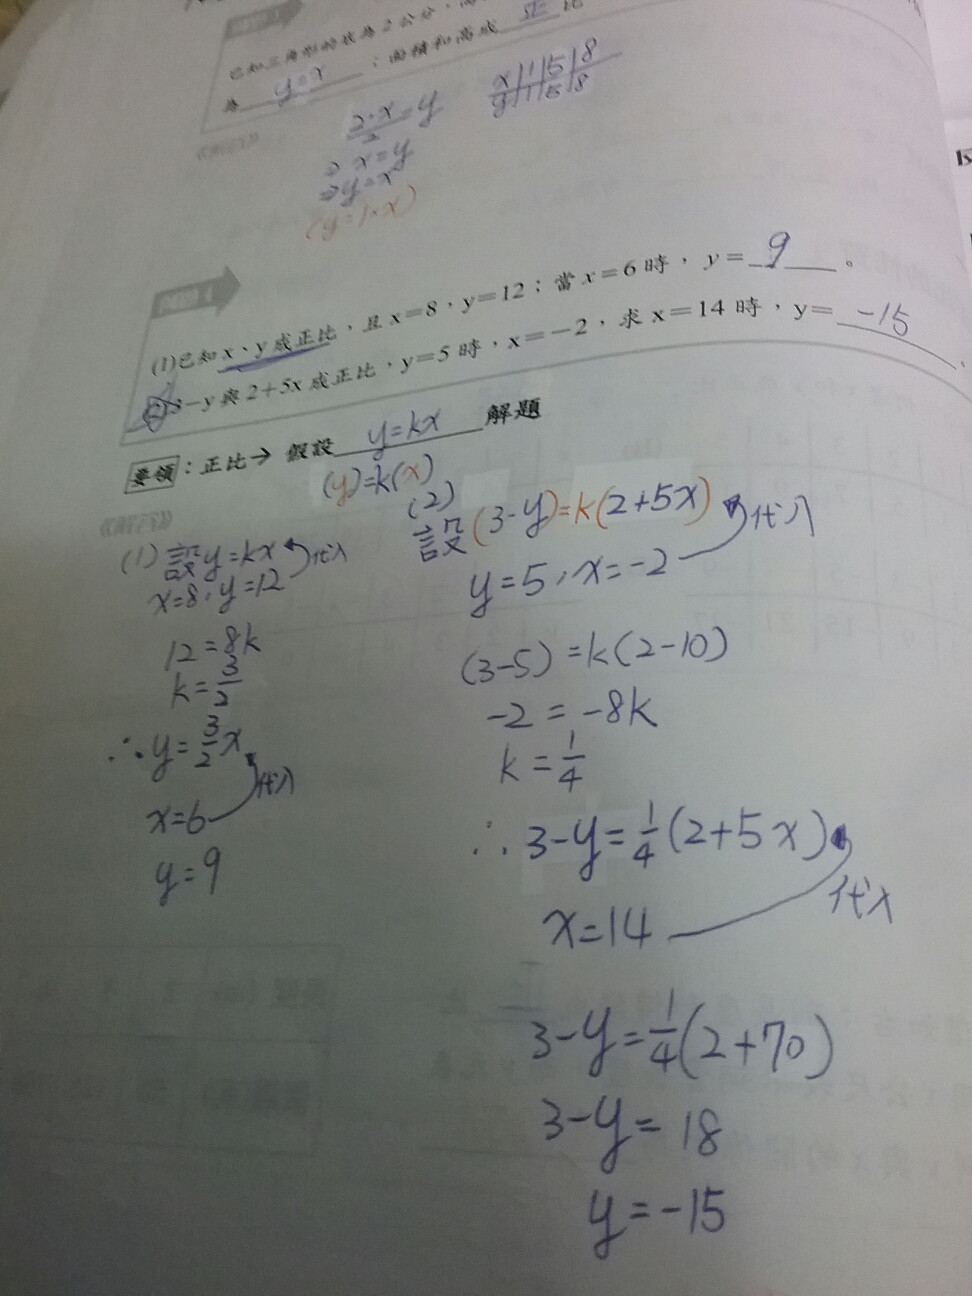 已知三角形的底為2公分，
為 y=x ；面積和高成 正 比
2·x/2=y
x|1|5|8
y|1|5|8
⇒ x=y
⇒y=x
(y=1·x)
(1)已知x、y成正比，且x=8，y=12；當x=6時，y= 9 。
(2)3-y與2+5x成正比，y=5時，x=-2，求x=14時，y= -15
要領：正比→假設 y=kx 解題
(y)=k(x)
(1) 設y=kx 代入
x=8，y=12
12=8k
k=3/2
∴y=3/2x
代入
x=6
y=9
(2)
設(3-y)=k(2+5x) 代入
y=5，x=-2
(3-5)=k(2-10)
-2=-8k
k=1/4
∴3-y=1/4(2+5x)
代入
x=14
3-y=1/4(2+70)
3-y=18
y=-15